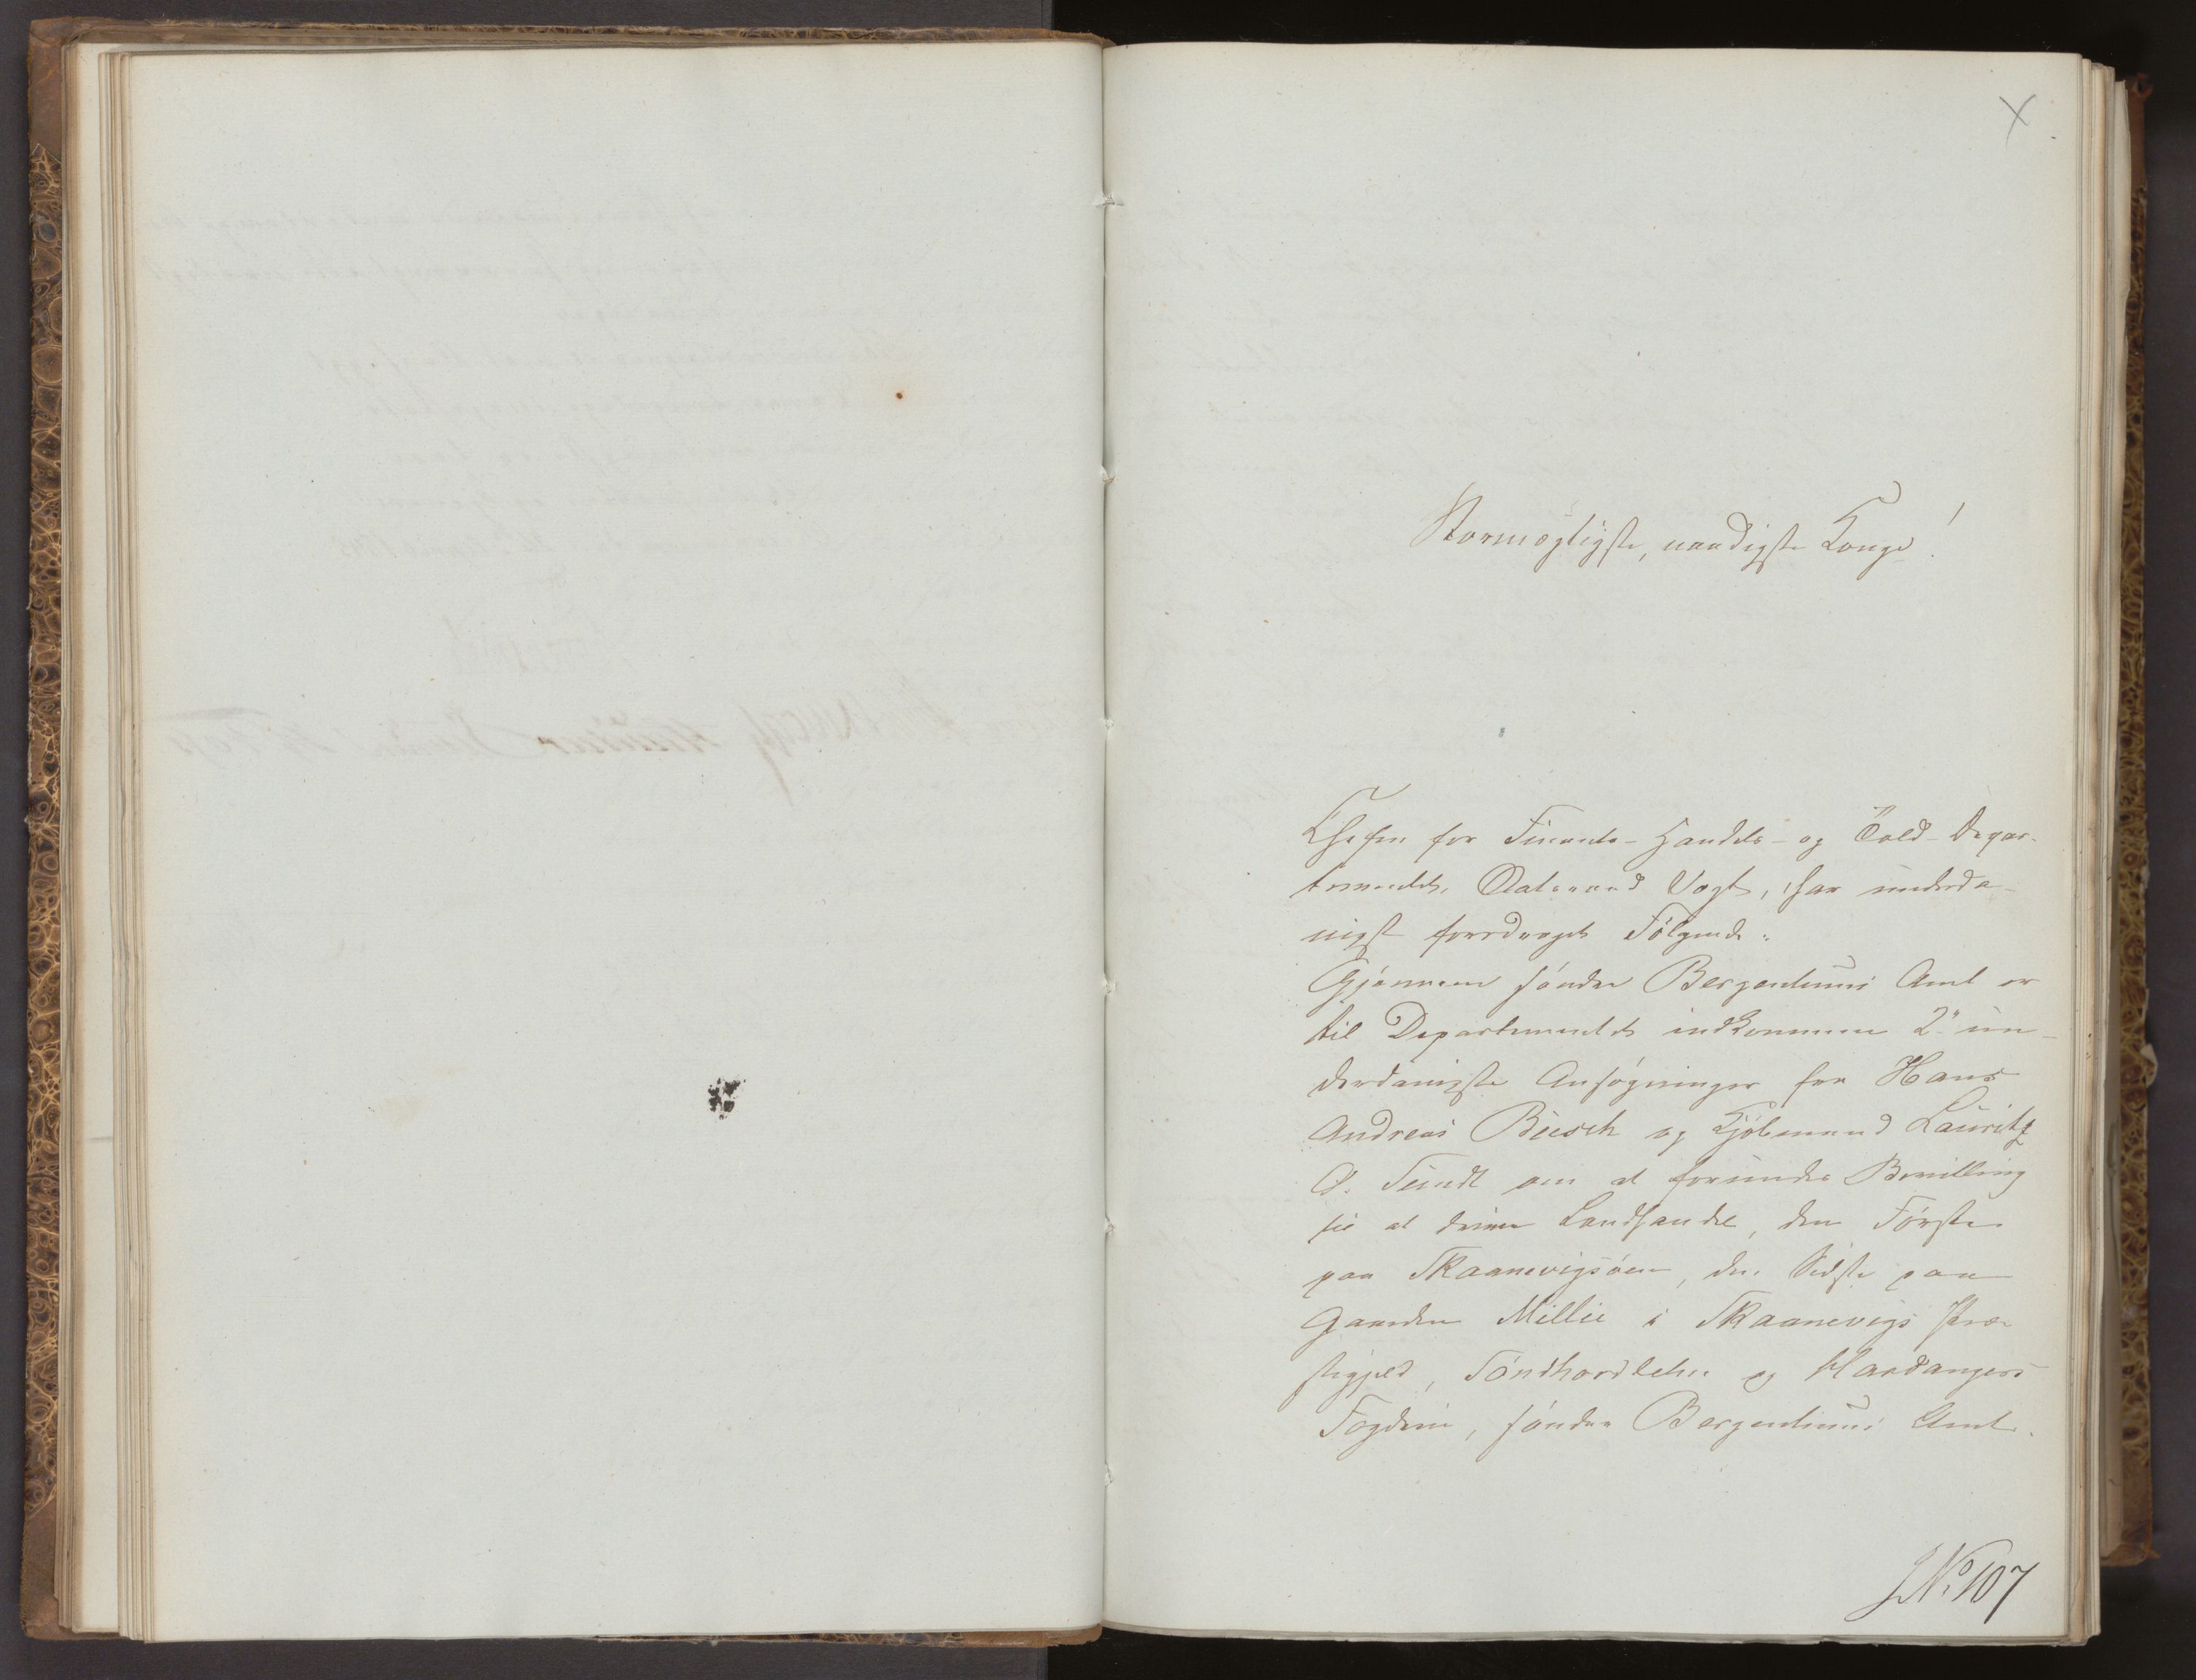 X
Stormægtigste, naadigste Konge!
Chefen for Finants- Handels- og Told-Depar-
tementet, Statsraad Vogt, har underda-
nigst foredraget Følgende:
Gjennem søndre Bergenhuus Amt er
til Departementet indkommen 2de un-
derdanigste Ansøgninger fra Hans
Andreas Büsch og Kjøbmand Lauritz
Ø. Tundt om at forundes Bevilling
til at drive Landhandel, den Første
paa Skaanevigsøen, den Sidste paa
Gaarden Millie i Skaanevigs Præ-
stegjeld, Søndhordlehns og Hardangers
Fogderie, søndre Bergenhuus Amt.
J.No. 107